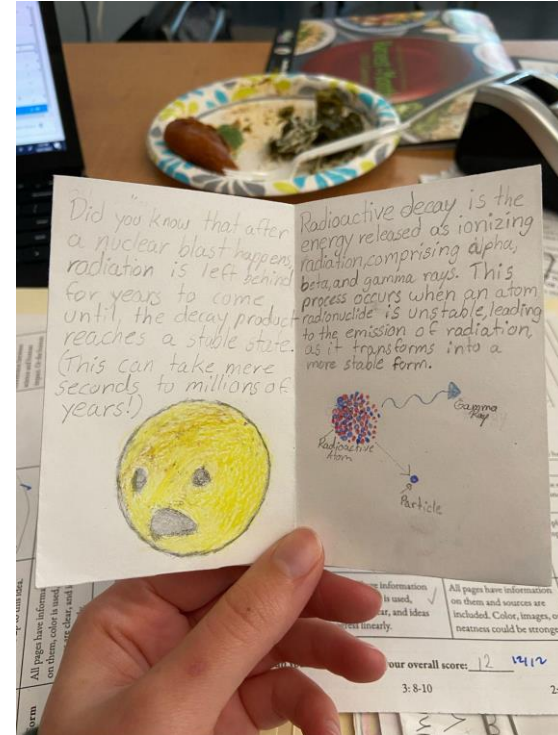 Did you know that after
a nuclear blast happens,
radiation is left behind
for years to come
until, the decay product
reaches a stable state.
(This can take mere
seconds to millions of
years!)
Radioactive decay is the
energy released as ionizing
radiation, comprising alpha,
beta, and gamma rays. This
process occurs when an atom
radionuclide is unstable, leading
to the emission of radiation,
as it transforms into a
more stable form.
Gamma
Ray
Radioactive
Atom
Particle
information
is used,
ar, and ideas
linearly.
All pages have information
on them and sources are
included. Color, images, o
neatness could be stronge
our overall score: 12 12/12
3: 8-10
2-
All pages have informa
on them, color is used,
are clear, and i
up to this idea.
orm